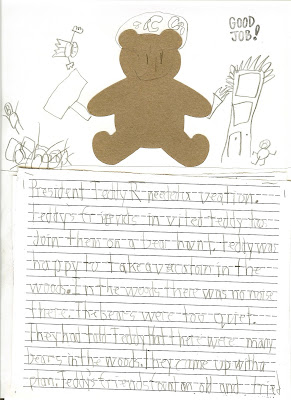 GOOD
JOB!
President Teddy R. needed a vcation.
Teddy's friends in vited Teddy too
Join them on a bear hunt. Teddy was
happy to take a vacation in the
woods. In the woods there was no noise
there. The bears were too quiet.
They had told Teddy that there were many
bears in the woods. They came up with a
plan. Teddy's friends found an old and tired